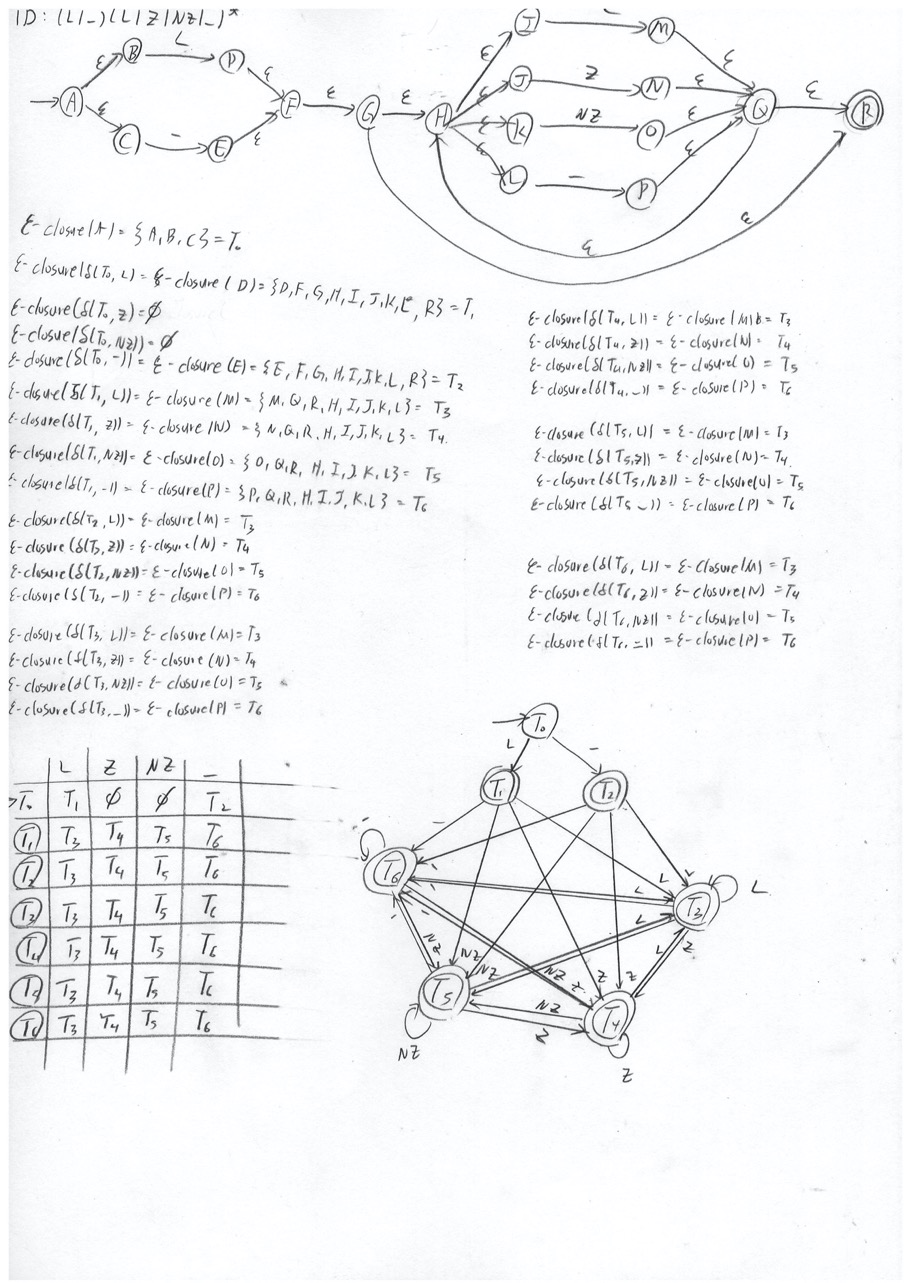 ID: (L|_)(L|Z|NZ|_)*
A B C L D _ E F G H I J K L M Z N NZ O _ P Q R
ε ε ε ε ε ε ε ε ε ε ε ε ε ε ε ε ε
ε-closure(A) = {A, B, C} = T₀
ε-closure(δ(T₀, L) = ε-closure(D) = {D, F, G, H, I, J, K, L, R} = T₁
ε-closure(δ(T₀, Z) = ∅
ε-closure(δ(T₀, NZ)) = ∅
ε-closure(δ(T₀, -)) = ε-closure(E) = {E, F, G, H, I, J, K, L, R} = T₂
ε-closure(δ(T₁, L)) = ε-closure(M) = {M, Q, R, H, I, J, K, L} = T₃
ε-closure(δ(T₁, Z)) = ε-closure(N) = {N, Q, R, H, I, J, K, L} = T₄.
ε-closure(δ(T₁, NZ)) = ε-closure(O) = {O, Q, R, H, I, J, K, L} = T₅
ε-closure(δ(T₁, -)) = ε-closure(P) = {P, Q, R, H, I, J, K, L} = T₆
ε-closure(δ(T₂, L)) = ε-closure(M) = T₃
ε-closure(δ(T₂, Z)) = ε-closure(N) = T₄
ε-closure(δ(T₂, NZ)) = ε-closure(O) = T₅
ε-closure(δ(T₂, -)) = ε-closure(P) = T₆
ε-closure(δ(T₃, L)) = ε-closure(M) = T₃
ε-closure(δ(T₃, Z)) = ε-closure(N) = T₄
ε-closure(δ(T₃, NZ)) = ε-closure(O) = T₅
ε-closure(δ(T₃, _)) = ε-closure(P) = T₆
ε-closure(δ(T₄, L)) = ε-closure(M) = T₃
ε-closure(δ(T₄, Z)) = ε-closure(N) = T₄
ε-closure(δ(T₄, NZ)) = ε-closure(O) = T₅
ε-closure(δ(T₄, _)) = ε-closure(P) = T₆
ε-closure(δ(T₅, L)) = ε-closure(M) = T₃
ε-closure(δ(T₅, Z)) = ε-closure(N) = T₄.
ε-closure(δ(T₅, NZ)) = ε-closure(O) = T₅
ε-closure(δ(T₅ _)) = ε-closure(P) = T₆
ε-closure(δ(T₆, L)) = ε-closure(M) = T₃
ε-closure(δ(T₆, Z)) = ε-closure(N) = T₄
ε-closure(δ(T₆, NZ)) = ε-closure(O) = T₅
ε-closure(δ(T₆, _)) = ε-closure(P) = T₆
L Z NZ _
T₀ T₁ ∅ ∅ T₂
T₁ T₃ T₄ T₅ T₆
T₂ T₃ T₄ T₅ T₆
T₃ T₃ T₄ T₅ T₆
T₄ T₃ T₄ T₅ T₆
T₅ T₃ T₄ T₅ T₆
T₆ T₃ T₄ T₅ T₆
T₀
L -
T₁ T₂
T₆ L L L T₃ L
NZ NZ NZ L L Z
T₅ NZ Z Z Z T₄
NZ Z
NZ Z